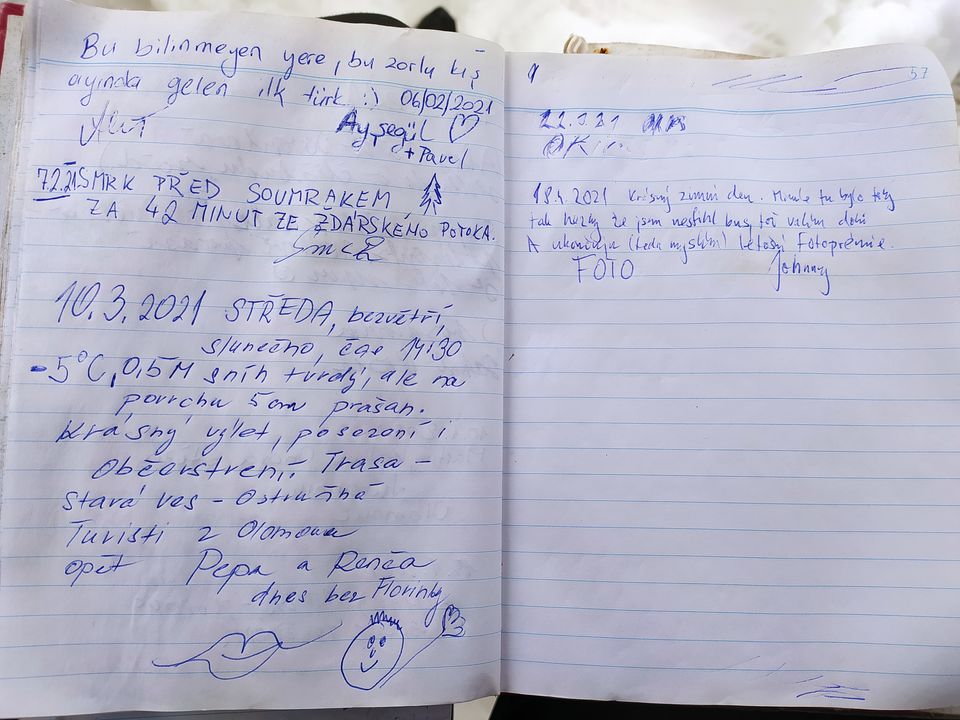 Bu bilinmeyen yere, bu zorlu kış
ayında gelen ilk türk :) 06/02/2021
Ayşegül
+ Pavel
7.2.21 SMRK PŘED SOUMRAKEM
ZA 42 MINUT ZE ŽĎÁRSKÉHO POTOKA.
10.3.2021 STŘEDA, bezvětří,
slunečno, čas 14:30
-5°C, 0,5M sníh tvrdý, ale na
povrchu 5cm prašan.
Krásný výlet, posezení i
občerstvení. Trasa -
Stará ves - Ostružná
Turisti z Olomouce
opět Pepa a Renča
dnes bez Florinky
57
22.3.21
OK
18.4.2021 Krásný zimní den. Minule tu bylo taky
tak hezky že jsem nestihl bus,
A ukončuju (teda myslím) letošní Fotoprémie.
FOTO Johnny